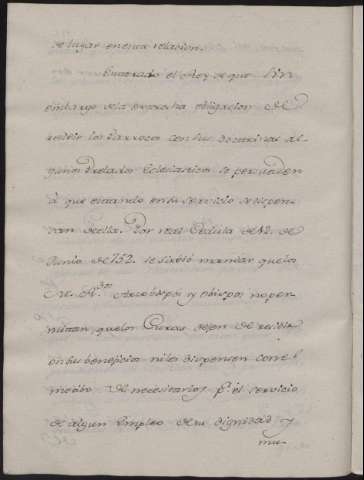 de lugar en esta relacion.
Enterado el Rey de que sin
embargo de la estrecha obligacion de
residir los Parrocos en sus doctrinas al
gunos Prelados Eclesiasticos se persuaden
à que estando en su servicio se dispen
san de ella. Por real Cedula de 12. de
Junio de 752. se sirbió mandar que los
M. RR.dos Arzobispos y obispos no per
mitan, que los Curas dejen de residir
en sus beneficios ni los dispensen con el
motibo de necesitarlos p.a el servicio
de algun empleo de su dignidad y
mu-